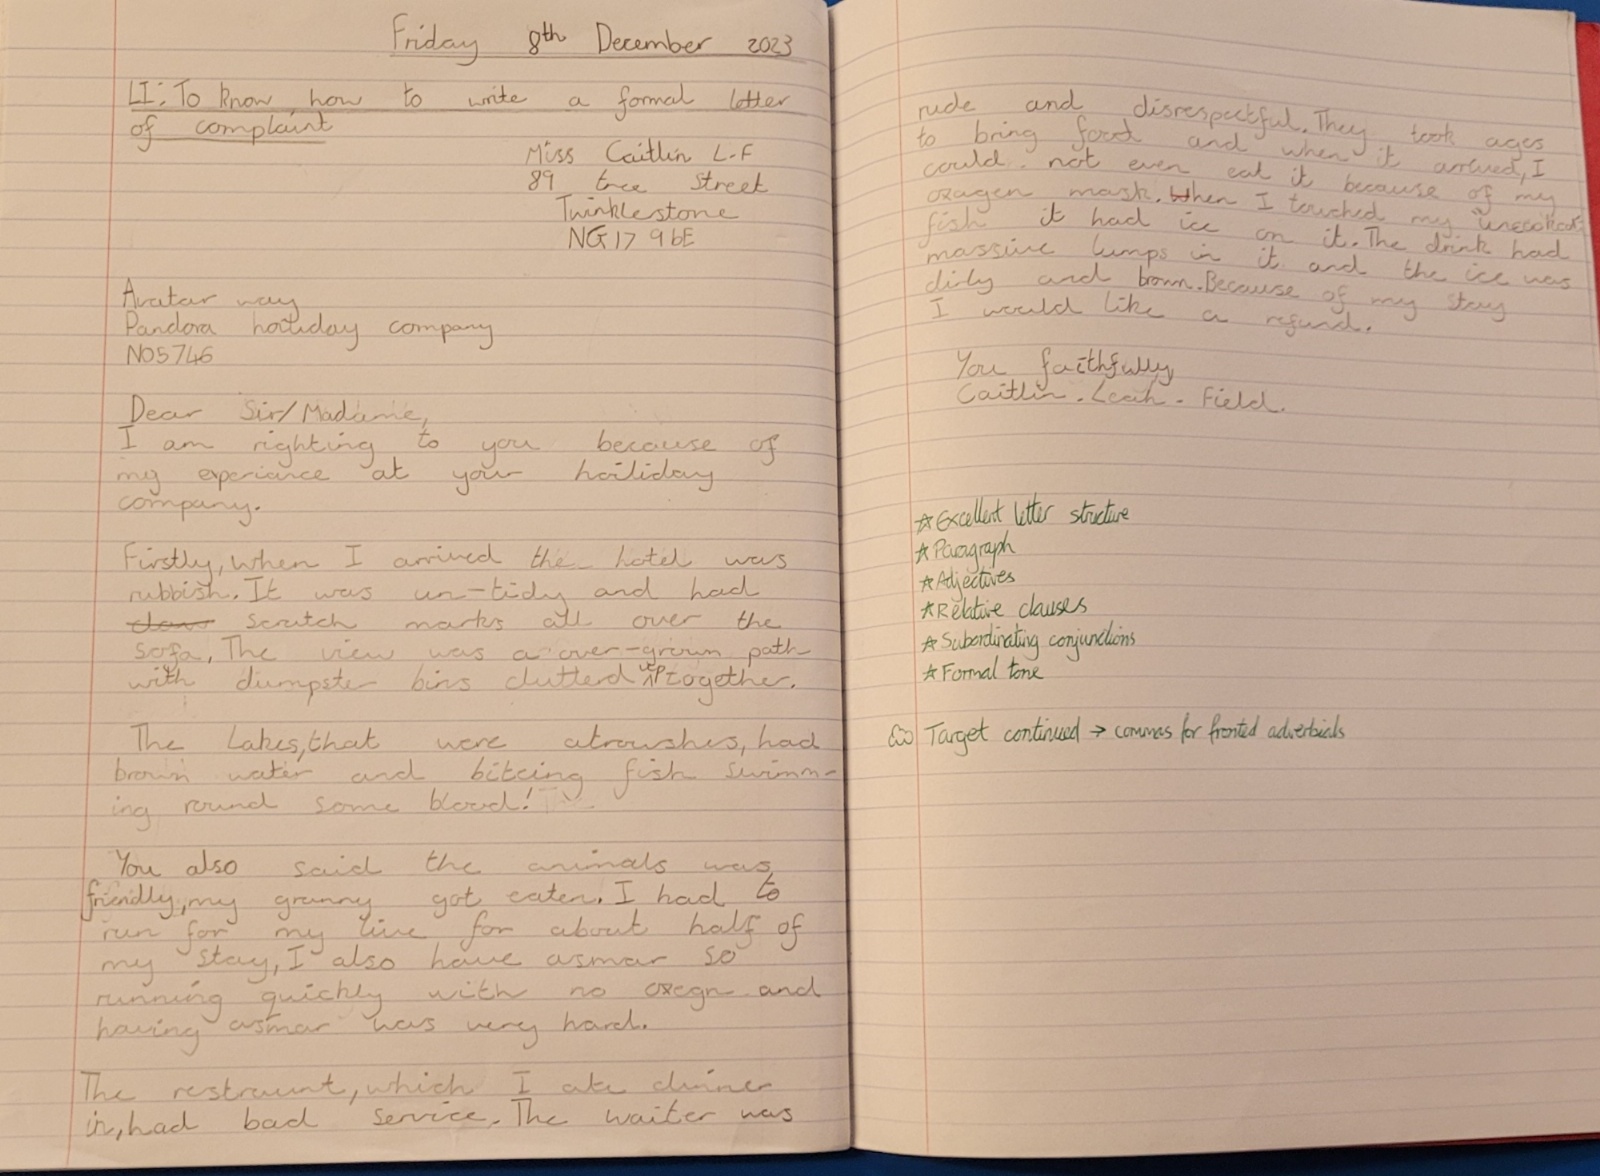 Friday 8th December 2023
LI: To know how to write a formal letter
of complaint
Miss Caitlin L-F
89 tree Street
Twinklestone
NG17 9bE
Avatar way
Pandora holiday company
NO5746
Dear Sir/Madame,
I am righting to you because of
my experiance at your hoiliday
company.
Firstly, when I arrived the hotel was
rubbish. It was un-tidy and had
scratch marks all over the
sofa. The view was a over-grown path
with dumpster bins clutterd up together.
The Lakes, that were atroushes, had
brown water and biteing fish swimm-
ing round some blood!
You also said the animals was
friendly, my granny got eaten. I had to
run for my live for about half of
my stay, I also have asmar so
running quickly with no oxegn and
having asmar was very hard.
The restraunt, which I ate dinner
in, had bad service. The waiter was
rude and disrespectful. They took ages
to bring food and when it arrived, I
could not even eat it because of my
oxagen mask. When I touched my
fish it had ice on it. The drink had
massive lumps in it and the ice was
dirty and brown. Because of my stay
I would like a refund.
You faithfully
Caitlin. Leah - Field.
☆ Excellent letter structure
☆ Paragraph
☆ Adjectives
☆ Relative clauses
☆ Subordinating conjunctions
☆ Formal tone
Target continued → commas for fronted adverbials